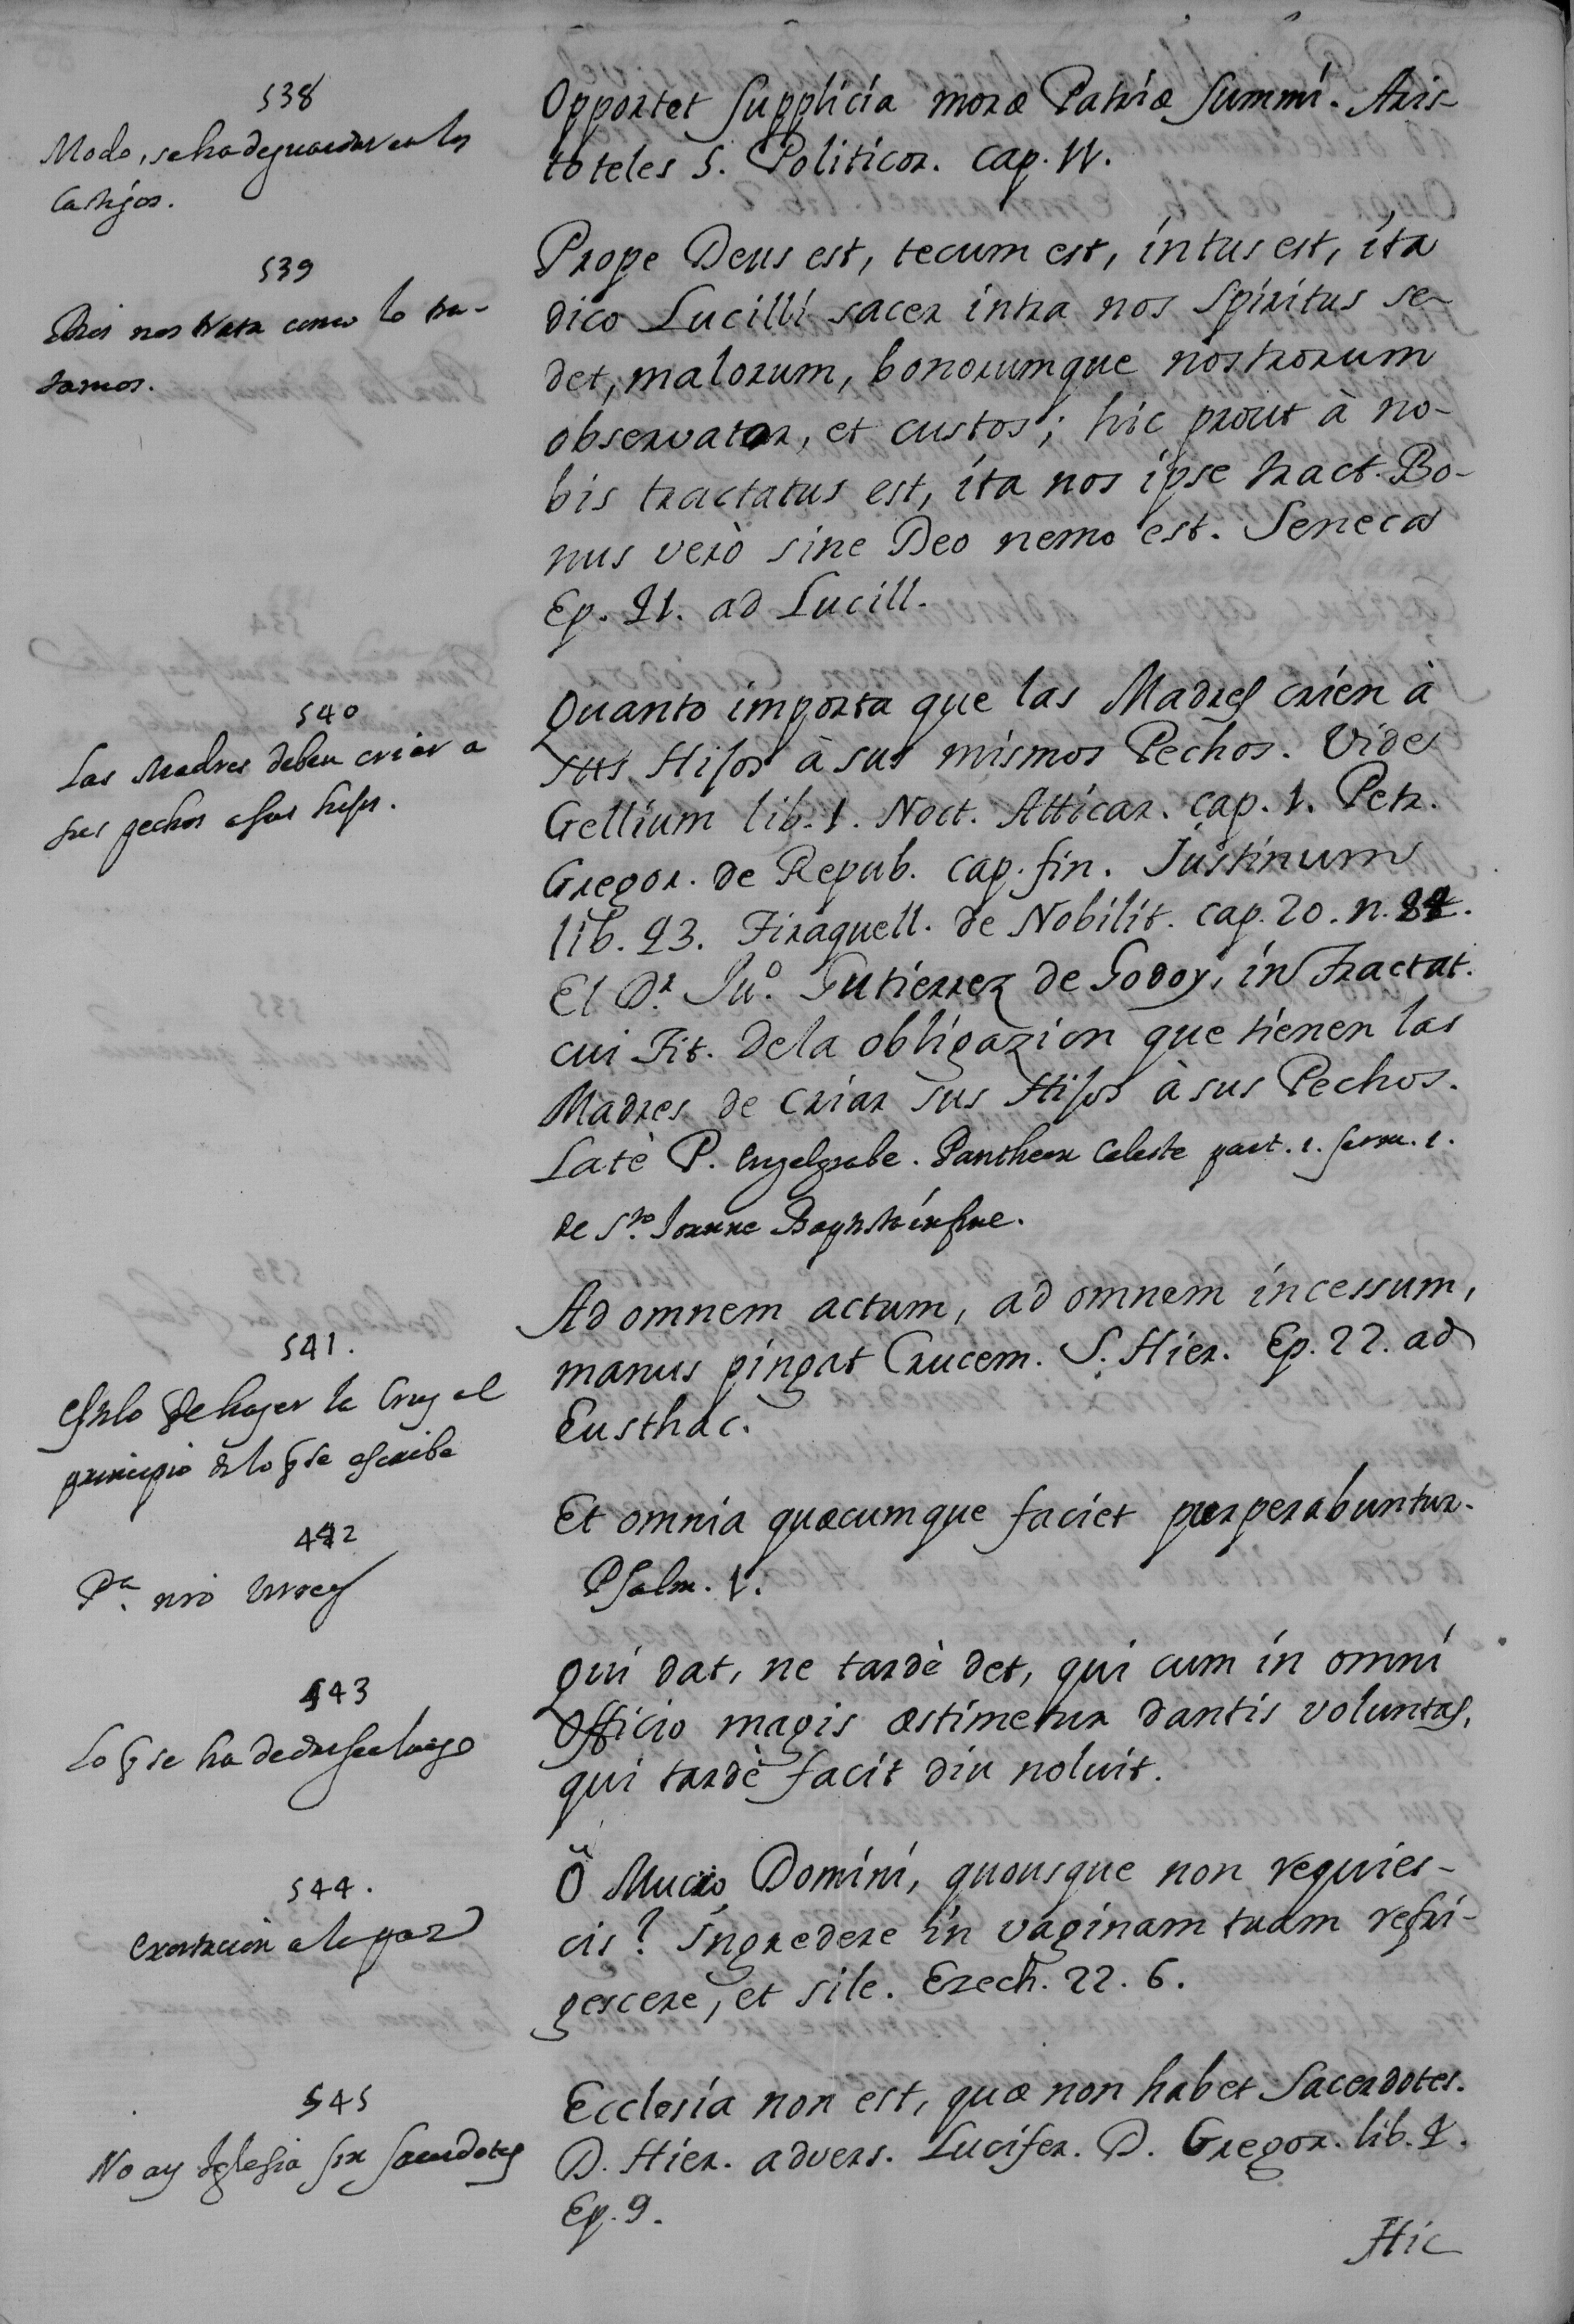 538
Modo, se ha de guardar en los
Castigos.
Opportet Supplicia moræ Patriæ Summi. Aris-
toteles 5. Politicor. cap. 11.
539
Dios nos trata como lo tra-
tamos.
Prope Deus est, tecum est, intus est, ita
dico Lucilli sacer intra nos Spiritus se-
det, malorum, bonorumque nostrorum
observator, et custos; hic prout à no-
bis tractatus est, ita nos ipse tract. Bo-
nus verò sine Deo nemo est. Seneca
Ep. 41. ad Lucill.
540
Las Madres deben criar a
sus pechos a sus hijos.
Quanto importa que las Madres crien à
sus Hijos à sus mismos Pechos. Vide
Gellium lib. 1. Noct. Atticar. cap. 1. Petr.
Gregor. de Repub. cap. fin. Justinum
lib. 23. Tiraquell. de Nobilit. cap. 20. n.
El Dr. Juo. Gutierrez de Godoy, in Tractat.
cui Tit. Dela obligazion que tienen las
Madres de Criar sus Hijos à sus Pechos.
Latè P. Engelgrabe. Pantheon Celeste part. 1. serm. 1.
de Sto. Joanne Baptista in fine.
541.
Estilo de hazer la Cruz al
principio de lo q se escribe
Ad omnem actum, ad omnem incessum,
manus pingat Crucem. S. Hier. Ep. 22. ad
Eusthac.
442
Pa.
Et omnia quæcumque faciet prosperabuntur.
Psalm. 1.
543
Lo q se ha de dar sea luego
Qui dat, ne tardè det, qui cum in omni
Officio magis æstimetur dantis voluntas,
qui tardè facit diu noluit.
544.
Exortacion a la paz
Ò Mucro Domini, quousque non requies-
cis? Ingredere in vaginam tuam refri-
gescere, et sile. Ezech. 22. 6.
545
No ay Iglesia sin sacerdotes
Ecclesia non est, quæ non habet Sacerdotes.
D. Hier. advers. Lucifer. D. Gregor. lib. 2.
Ep. 9.
Hic